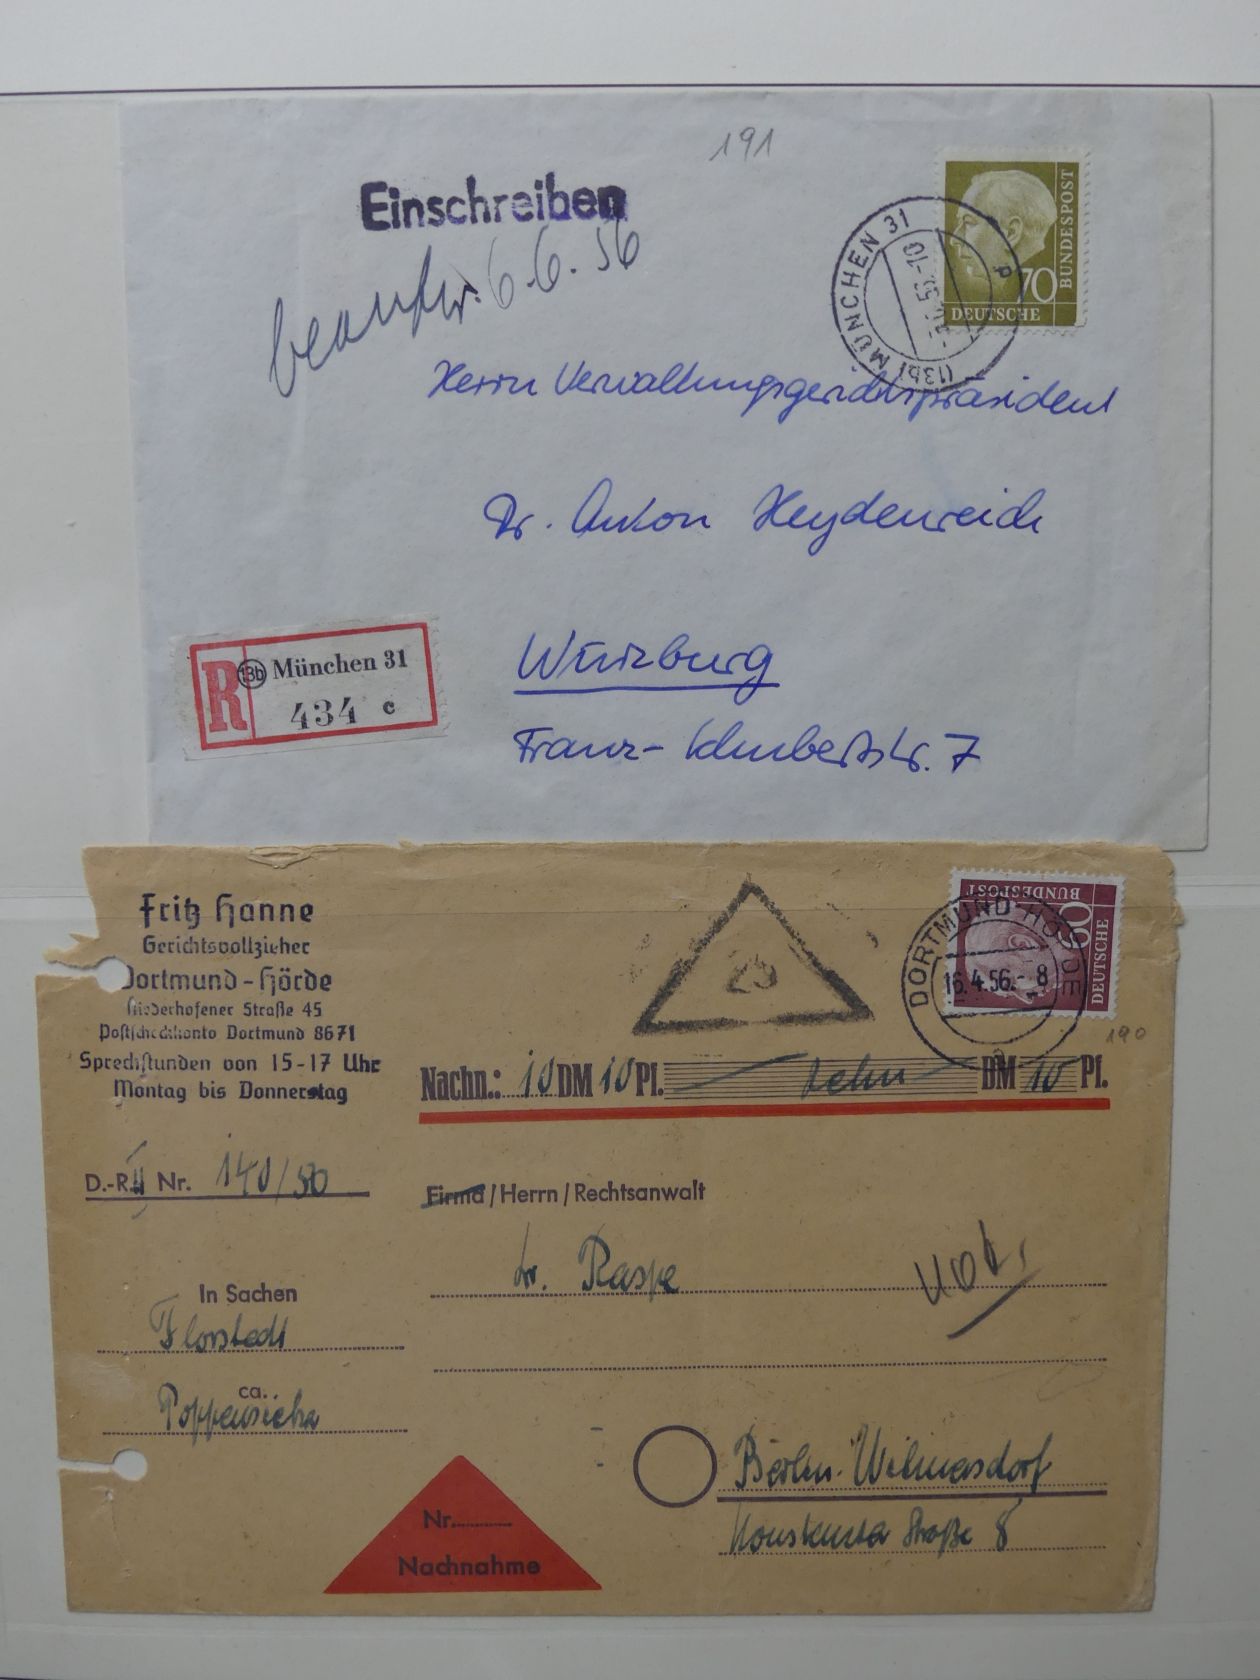 191
Einschreiben
beantw. 6.6.56
70
DEUTSCHE
BUNDESPOST
(13b) MÜNCHEN 31
p
Herrn Verwaltungsgerichtspräsident
Dr. Anton Heydenreich
Würzburg
Franz-Schubertstr. 7
R
13b München 31
434 c
Fritz Hanne
Gerichtsvollzieher
Dortmund-Hörde
Niederhofener Straße 45
Postscheckkonto Dortmund 8671
Sprechstunden von 15-17 Uhr
Montag bis Donnerstag
25
BUNDESPOST
60
DEUTSCHE
DORTMUND-HÖRDE
16.4.56.- 8
190
Nachn.: 10 DM 10 Pf. zehn DM 10 Pf.
D.-R. II Nr. 140/56
Firma/Herrn/Rechtsanwalt
Dr. Raspe
In Sachen
Florstedt
ca.
Berlin-Wilmersdorf
Konstanzer Straße 8
Nr.
Nachnahme